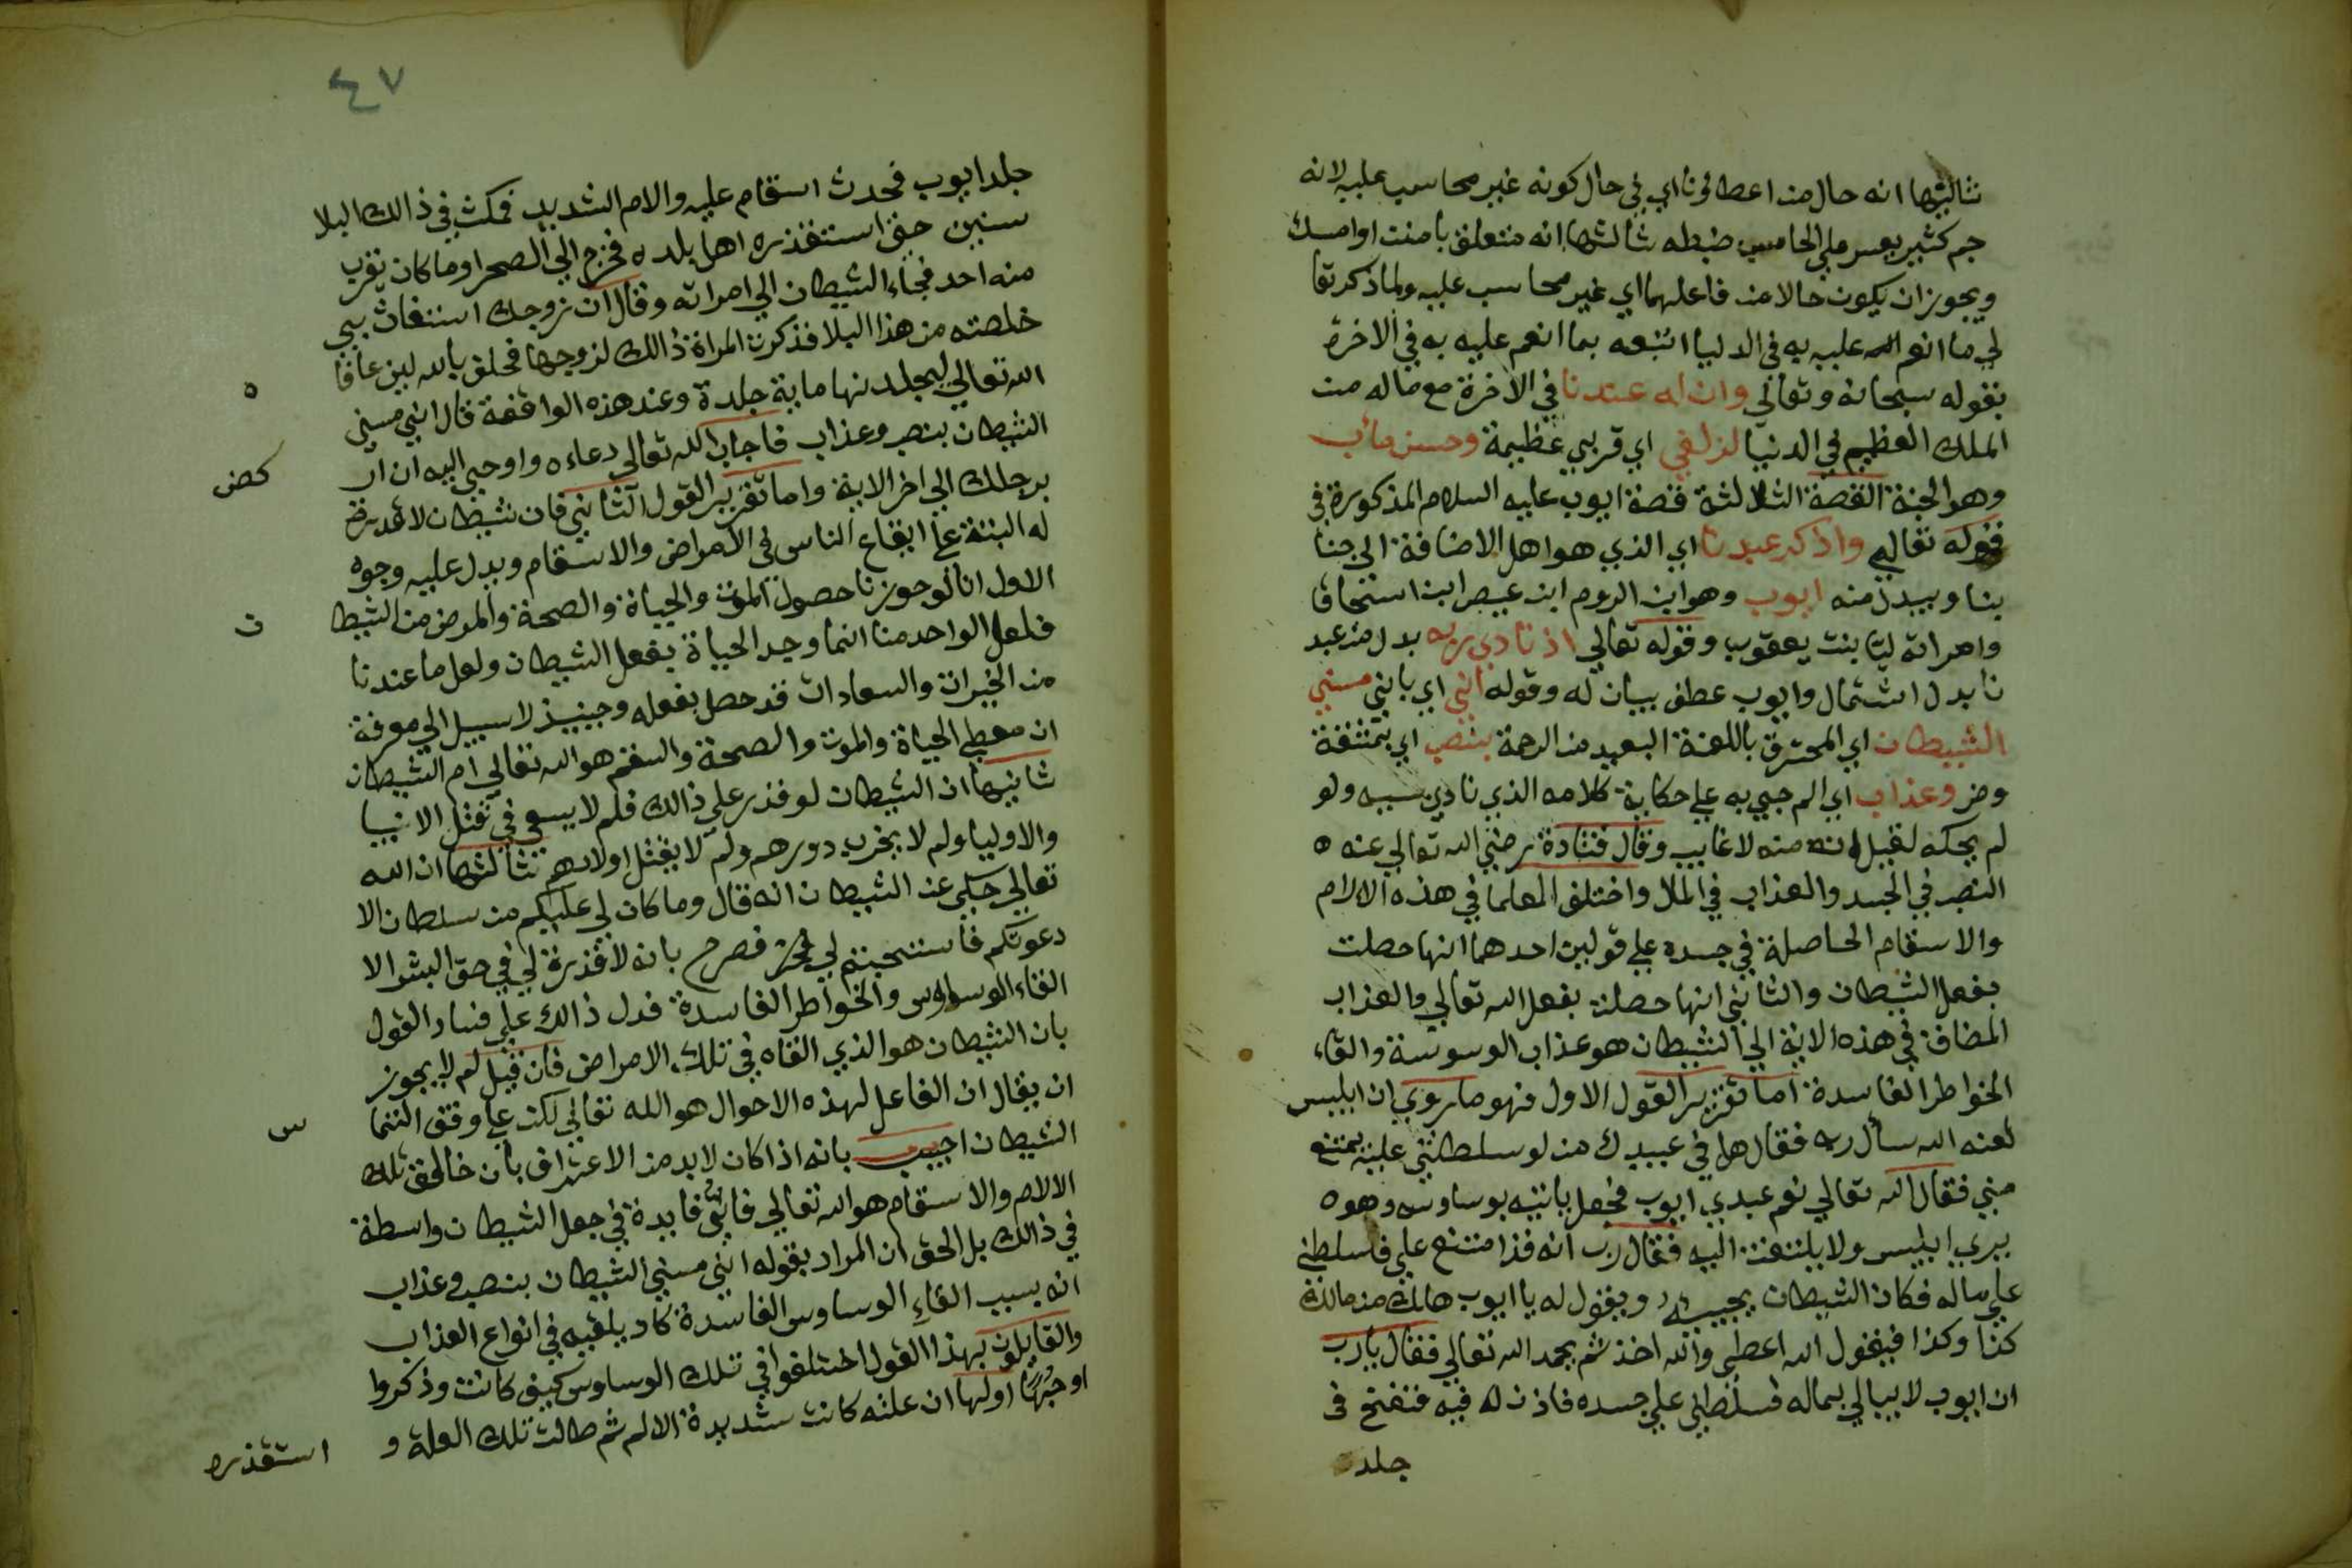 ثالثها انه حال من اعطاؤنا اي في حال كونه غير محاسب عليه لانه
جم كثير يعسر علي الحاسب ضبطه ثالثها انه متعلق بامنن او امسك
ويجوز ان يكون حالا من فاعلهما اي غير محاسب عليه ولما ذكر تعا
لي ما انعم الله عليه به في الدنيا اتبعه بما انعم عليه به في الاخرة
بقوله سبحانه وتعالي وان له عندنا في الاخرة مع ماله من
الملك العظيم في الدنيا لزلفي اي قربي عظيمة وحسن مآب
وهو الجنة القصة الثالثة قصة ايوب عليه السلام المذكورة في
قوله تعالي واذكر عبدنا اي الذي هو اهل الاضافة الي جنا
بنا ويبدل منه ايوب وهو ابن الروم ابن عيص ابن استحاقا
وامراته ليا بنت يعقوب وقوله تعالي اذ نادي ربه بدل من عبد
نا بدل اشتمال وايوب عطف بيان له وقوله اني اي باني مسني
الشيطان اي المحترق باللعنة البعيد من الرحمة بنصب اي بمشقة
وضر وعذاب اي الم جيي به علي حكاية كلامه الذي نادي بسببه ولو
لم يحكه لقيل انه منه لا غايب وقال قتادة رضي الله تعالي عنه ه
النصب في الجسد والعذاب في المال واختلف العلما في هذه الالام
والاسقام الحاصلة في جسده علي قولين احدهما انها حصلت
بفعل الشيطان والثاني انها حصلت بفعل الله تعالي والعذاب
المضاف في هذه الاية الي الشيطان هو عذاب الوسوسة والقاء
الخواطر الفاسدة اما تقرير القول الاول فهو ما روي ان ابليس
لعنه الله سأل ربه فقال هل في عبيدك من لو سلطتني عليه يمتنع
مني فقال الله تعالي نعم عبدي ايوب فجعل ياتيه بوساوسه وهو ه
يري ابليس ولا يلتفت اليه فقال رب انه قد امتنع علي فسلطني
علي ماله فكان الشيطان يجييه ويقول له يا ايوب هلك من مالك
كذا وكذا فيقول الله اعطي والله اخذ ثم يحمد الله تعالي فقال يا رب
ان ايوب لا يبالي بماله فسلطني علي جسده فاذن له فيه فنفخ في
جلد
٤٧
جلد ايوب فحدث اسقام عليه والام الشديد فمكث في ذالك البلا
سنين حتي استقذره اهل بلده فخرج الي الصحرا وما كان يقرب
منه احد فجاء الشيطان الي امراته وقال ان زوجك استغاث بيي
خلصته من هذا البلا فذكرت المراة ذالك لزوجها فحلف بالله لين عافا ه
الله تعالي ليجلدنها ماية جلدة وعند هذه الواقعة قال اني مسني
الشيطان بنصب وعذاب فاجاب الله تعالي دعاءه واوحي اليه ان ار كض
برجلك الي اخر الاية واما تقرير القول الثاني فان شيطان لا قدرة
له البتة علي ايقاع الناس في الامراض والاسقام ويدل عليه وجوه
الاول انا لو جوزنا حصول الموت والحياة والصحة والمرض من الشيطا ن
فلعل الواحد منا انما وجد الحياة بفعل الشيطان ولعل ما عندنا
من الخيرات والسعادات قد حصل بفعله وحينيذ لا سبيل الي معرفة
ان معطي الحياة والموت والصحة والسقم هو الله تعالي ام الشيطان
ثانيها ان الشيطان لو قدر علي ذالك فلم لا يسعي في قتل الانبيا
والاوليا ولم لا يخرب دورهم ولم لا يقتل اولادهم ثالثها ان الله
تعالي حكي عن الشيطان انه قال وما كان لي عليكم من سلطان الا
دعوتكم فاستجبتم لي فصرح بانه لا قدرة لي في حق البشر الا
القاء الوساوس والخواطر الفاسدة فدل ذالك علي فساد القول
بان الشيطان هو الذي القاه في تلك الامراض فان قيل لم لا يجوز
ان يقال ان الفاعل لهذه الاحوال هو الله تعالي لكن علي وفق التما س
الشيطان اجيب بانه اذا كان لا بد من الاعتراف بان خالق تلك
الالام والاسقام هو الله تعالي فاي فايدة في جعل الشيطان واسطة
في ذالك بل الحق ان المراد بقوله اني مسني الشيطان بنصب وعذاب
انه بسبب القاء الوساوس الفاسدة كاد يلقيه في انواع العذاب
والقايلون بهذا القول اختلفوا في تلك الوساوس كيف كانت وذكروا
اوجها اولها ان علته كانت شديدة الالم ثم طالت تلك العلة و استقذره